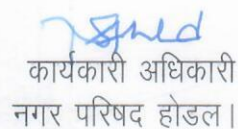 कार्यकारी अधिकारी
नगर परिषद होडल।